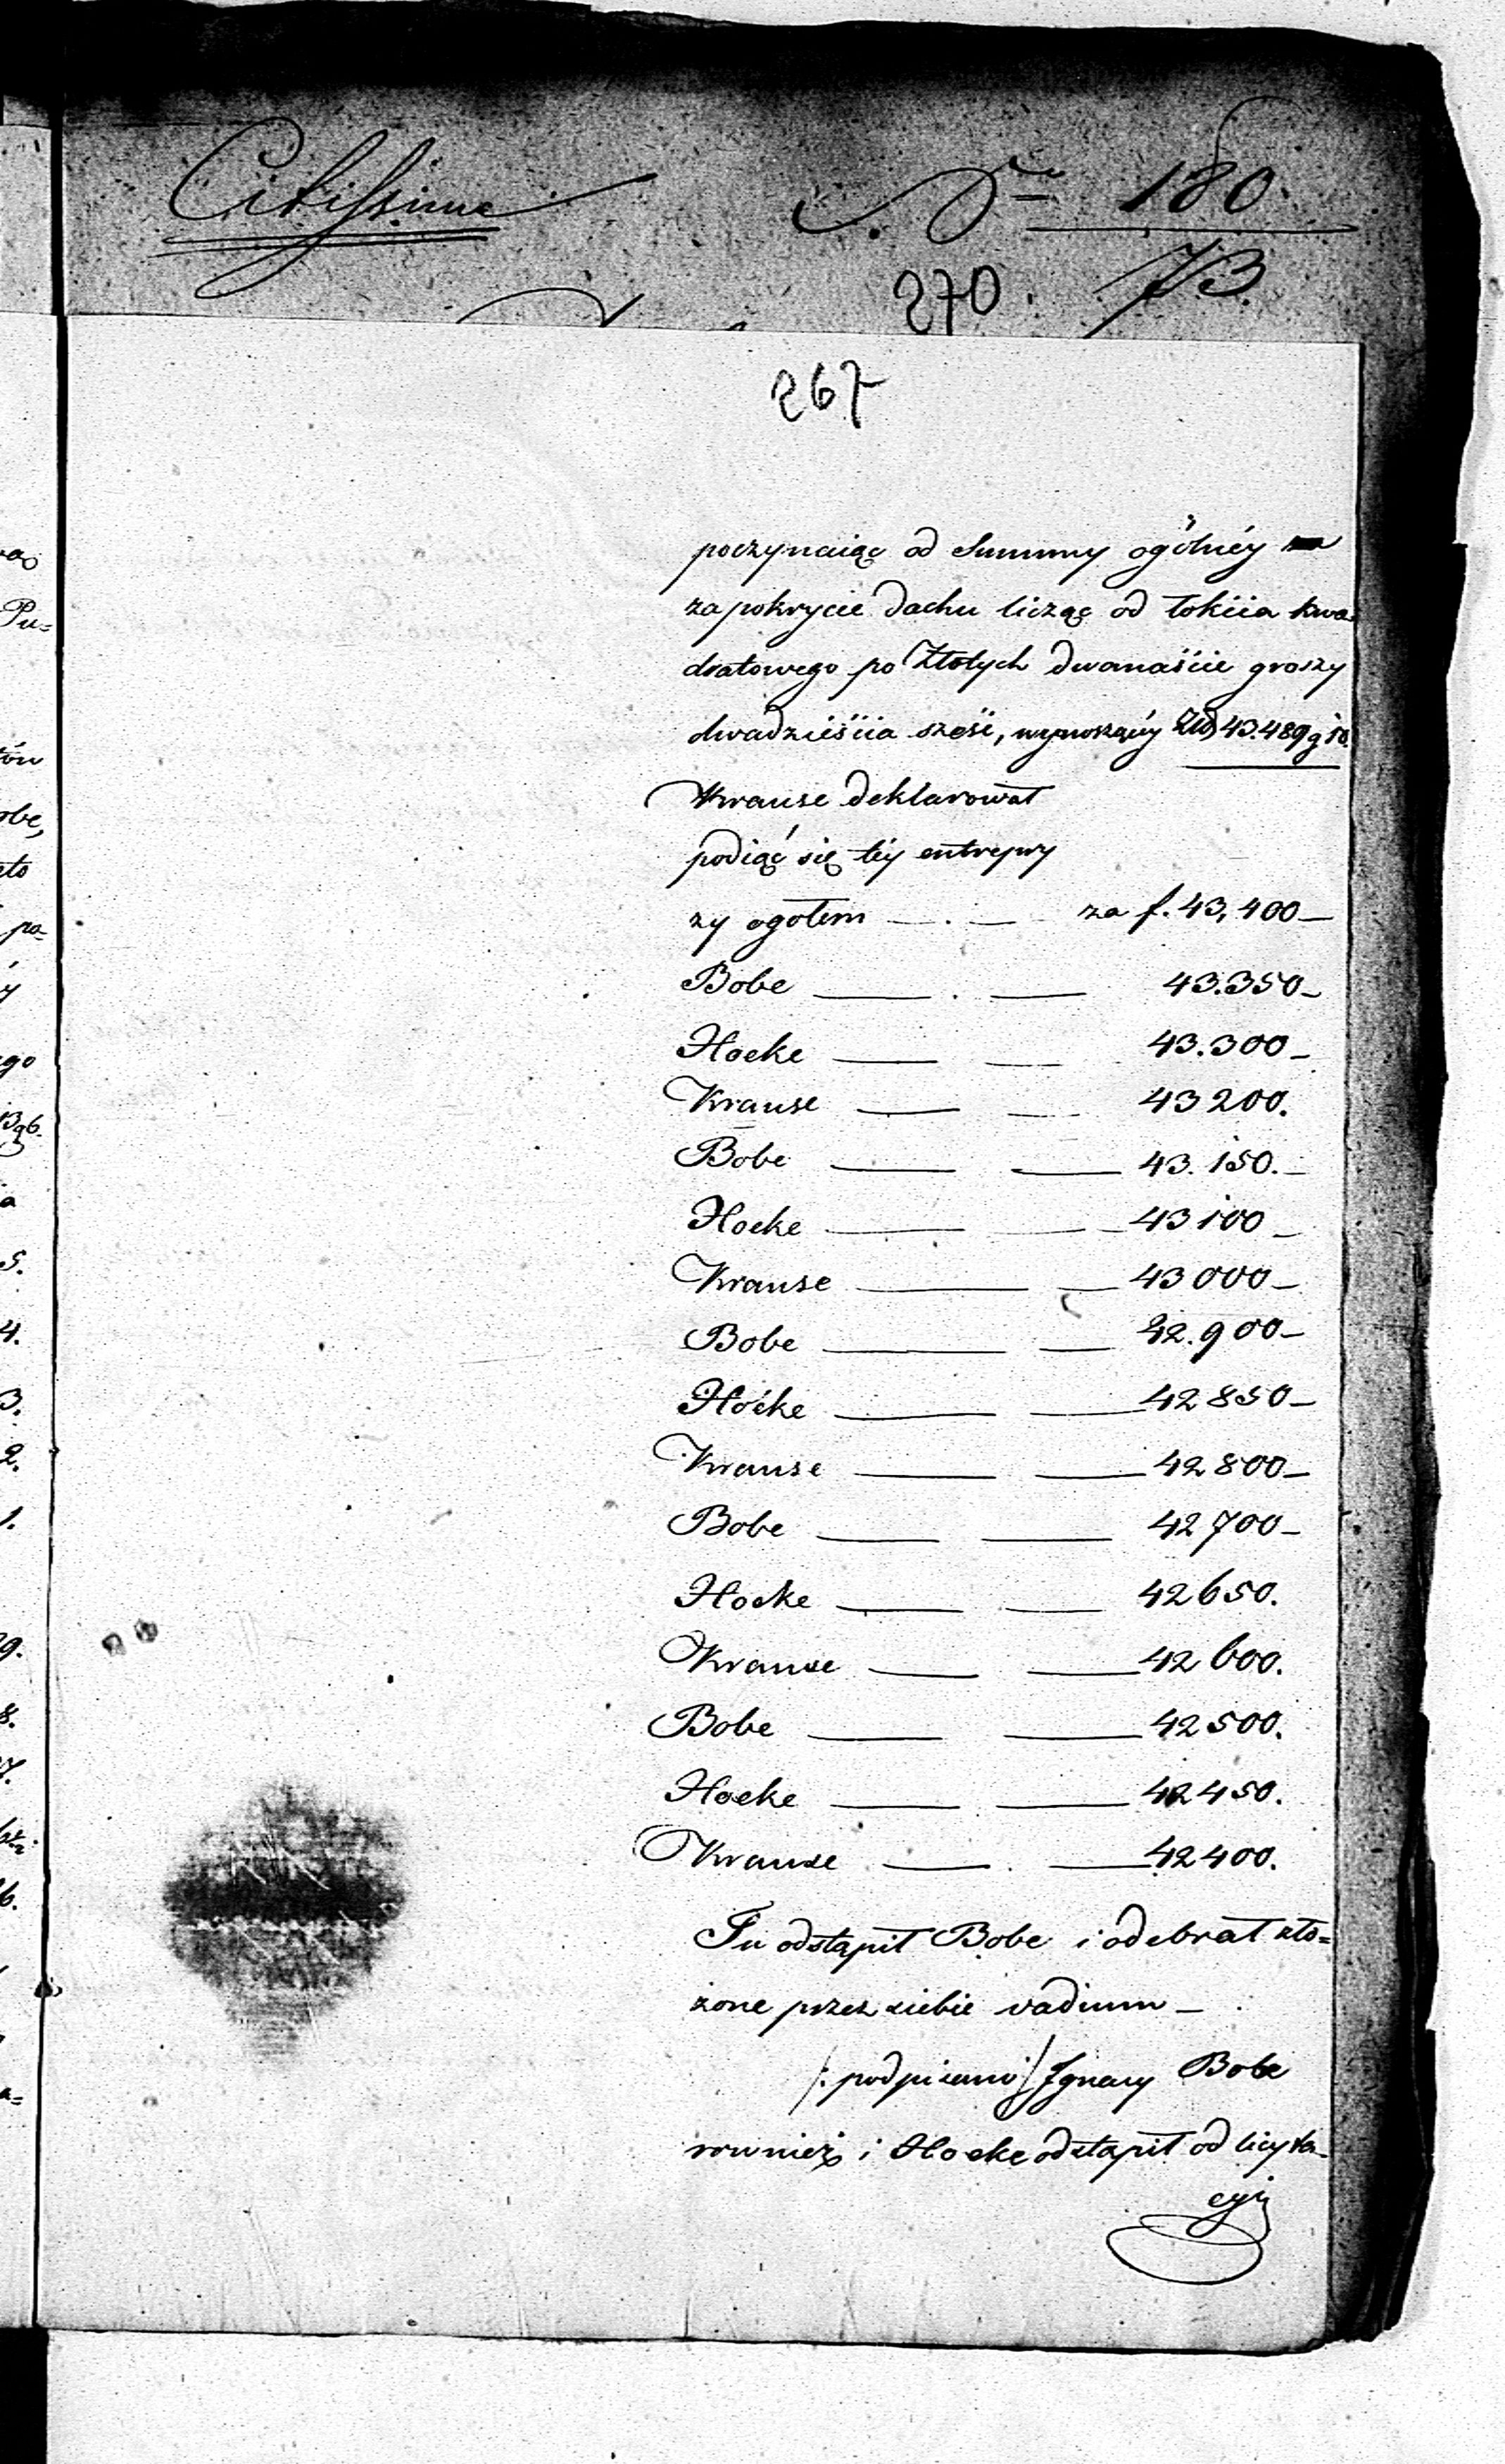 Citissime
No 180
73.
270.
267
poczynaiąc od Summy ogólnéy
za pokrycie dachu licząc od łokcia kwa-
dratowego po Złotych dwanaście groszy
dwadzieścia sześć, wynoszącéy Złp 43.489 g 10.
Krause deklarował
podiąć się téy entrepry
zy ogołem — . — za f. 43,400 —
Bobe — . — 43.350 —
Hocke — — 43.300 —
Krause — — 43200.
Bobe — — 43.150. —
Hocke — — 43100 —
Krause — — 43000 —
Bobe — — 42.900 —
Hocke — — 42850 —
Krause — — 42800 —
Bobe — — 42700 —
Hocke — — 42650.
Krause — — 42600.
Bobe — — 42500.
Hocke — — 42450.
Krause — . — 42400.
Tu odstąpił Bobe i odebrał zło=
żone przez siebie vadium —
/: podpisano / Ignacy Bobe
rownież i Hocke odstąpił od licyta-
cyi